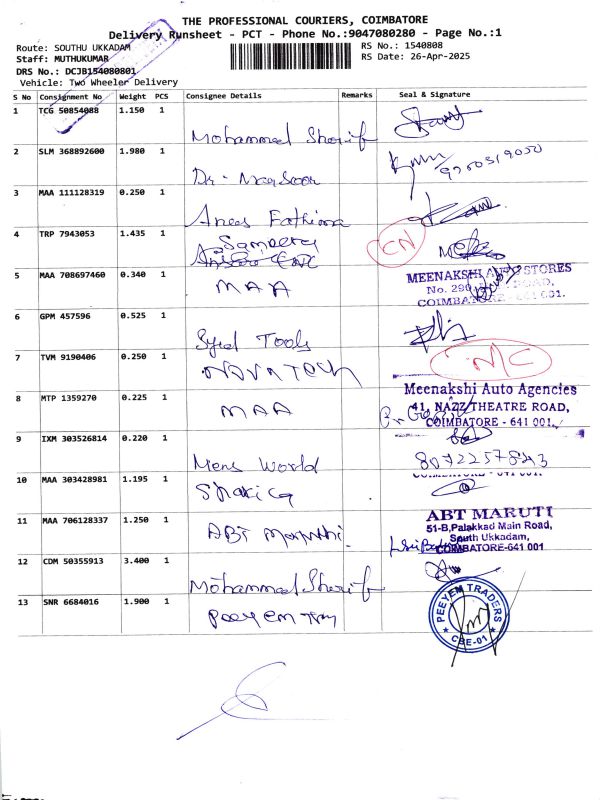 THE PROFESSIONAL COURIERS, COIMBATORE
Delivery Runsheet - PCT - Phone No.:9047080280 - Page No.:1
Route: SOUTHU UKKADAM
RS No.: 1540808
Staff: MUTHUKUMAR
RS Date: 26-Apr-2025
DRS No.: DCJB154080801
Vehicle: Two Wheeler Delivery
S No Consignment No Weight PCS Consignee Details Remarks Seal & Signature
1 TCG 50854088 1.150 1
Mohammed Sherif
2 SLM 368892600 1.980 1
Dr. Mansoor
3 MAA 111128319 0.250 1
Anees Fathima
4 TRP 7943053 1.435 1 Sameera CN
5 MAA 708697460 0.340 1 MAA
MEENAKSHI AUTO STORES
No. 290, ROAD,
COIMBATORE - 641 001.
6 GPM 457596 0.525 1
Syed Tools
7 TVM 9190406 0.250 1 NOVATECH NC
8 MTP 1359270 0.225 1 MAA
Meenakshi Auto Agencies
41, NAZZ THEATRE ROAD,
COIMBATORE - 641 001.
9 IXM 303526814 0.220 1
Mens World 8072257843
10 MAA 303428981 1.195 1
11 MAA 706128337 1.250 1 ABT Maruthi
ABT MARUTI
51-B,Palakkad Main Road,
South Ukkadam,
COIMBATORE-641 001
12 CDM 50355913 3.400 1
Mohammed Sherif
13 SNR 6684016 1.900 1 Peeyem
PEEYEM TRADERS
CBE-01